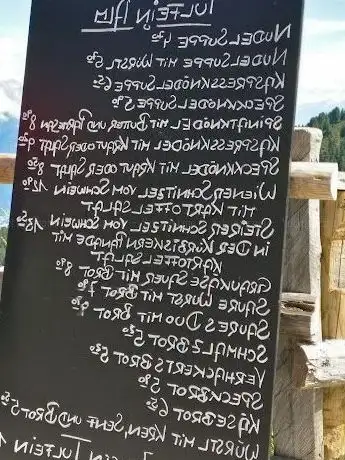 TULFEIN ALM
NUDELSUPPE 4
NUDELSUPPE MIT WURSTL 5
KASPRESSKNÖDELSUPPE 6
SPECKNÖDELSUPPE 5
SPINATKNÖDEL MIT BUTTER UND PARMESAN 8
KASPRESSKNÖDEL MIT KRAUT ODER SALAT 9
SPECKNÖDEL MIT KRAUT ODER SALAT 8
WIENERSCHNITZEL VOM SCHWEIN 12
MIT KARTOFFELSALAT
STEIRERSCHNITZEL VOM SCHWEIN 13
IN DER KÜRBISKERNPANADE MIT
KARTOFFELSALAT
GRAUKÄSE SAUER MIT BROT 8
SAURE WURST MIT BROT 7
SAURES DUO MIT BROT 9
SCHMALZBROT 5
VERHACKERTSBROT 5
SPECKBROT 5
KÄSEBROT 6
WÜRSTL MIT KREN, SENF UND BROT 5
TULFEIN